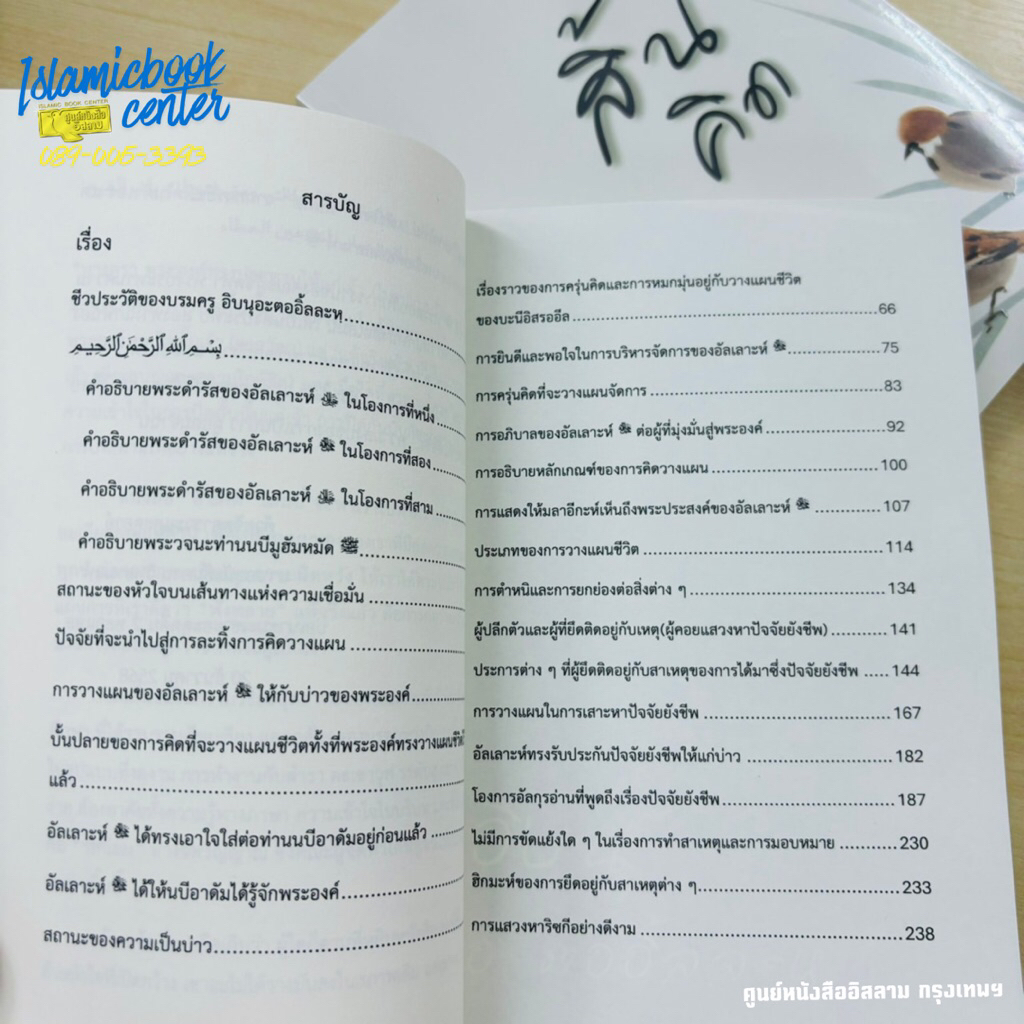 Islamicbook
center
ISLAMIC BOOK CENTER
ศูนย์หนังสือ
อิสลาม
089-005-3393
สิ้น
คิด
สารบัญ
เรื่อง
ชีวประวัติของบรมครู อิบนุอะตออิ้ลละหฺ
بِسْمِ اللهِ الرَّحْمَنِ الرَّحِيمِ
คำอธิบายพระดำรัสของอัลเลาะห์ ﷻ ในโองการที่หนึ่ง
คำอธิบายพระดำรัสของอัลเลาะห์ ﷻ ในโองการที่สอง
คำอธิบายพระดำรัสของอัลเลาะห์ ﷻ ในโองการที่สาม
คำอธิบายพระวจนะท่านนบีมูฮัมหมัด ﷺ
สถานะของหัวใจบนเส้นทางแห่งความเชื่อมั่น
ปัจจัยที่จะนำไปสู่การละทิ้งการคิดวางแผน
การวางแผนของอัลเลาะห์ ﷻ ให้กับบ่าวของพระองค์
บั้นปลายของการคิดที่จะวางแผนชีวิตทั้งที่พระองค์ทรงวางแผนชีวิตไว้
แล้ว
อัลเลาะห์ ﷻ ได้ทรงเอาใจใส่ต่อท่านนบีอาดัมอยู่ก่อนแล้ว
อัลเลาะห์ ﷻ ได้ให้นบีอาดัมได้รู้จักพระองค์
สถานะของความเป็นบ่าว
เรื่องราวของการครุ่นคิดและการหมกมุ่นอยู่กับวางแผนชีวิต
ของบะนีอิสรออีล 66
การยินดีและพอใจในการบริหารจัดการของอัลเลาะห์ ﷻ 75
การครุ่นคิดที่จะวางแผนจัดการ 83
การอภิบาลของอัลเลาะห์ ﷻ ต่อผู้ที่มุ่งมั่นสู่พระองค์ 92
การอธิบายหลักเกณฑ์ของการคิดวางแผน 100
การแสดงให้มลาอีกะห์เห็นถึงพระประสงค์ของอัลเลาะห์ ﷻ 107
ประเภทของการวางแผนชีวิต 114
การตำหนิและการยกย่องต่อสิ่งต่าง ๆ 134
ผู้ปลีกตัวและผู้ที่ยึดติดอยู่กับเหตุ(ผู้คอยแสวงหาปัจจัยยังชีพ) 141
ประการต่าง ๆ ที่ผู้ยึดติดอยู่กับสาเหตุของการได้มาซึ่งปัจจัยยังชีพ 144
การวางแผนในการเสาะหาปัจจัยยังชีพ 167
อัลเลาะห์ทรงรับประกันปัจจัยยังชีพให้แก่บ่าว 182
โองการอัลกุรอ่านที่พูดถึงเรื่องปัจจัยยังชีพ 187
ไม่มีการขัดแย้งใด ๆ ในเรื่องการทำสาเหตุและการมอบหมาย 230
ฮิกมะห์ของการยึดอยู่กับสาเหตุต่าง ๆ 233
การแสวงหาริซกีอย่างดีงาม 238
ศูนย์หนังสืออิสลาม กรุงเทพฯ